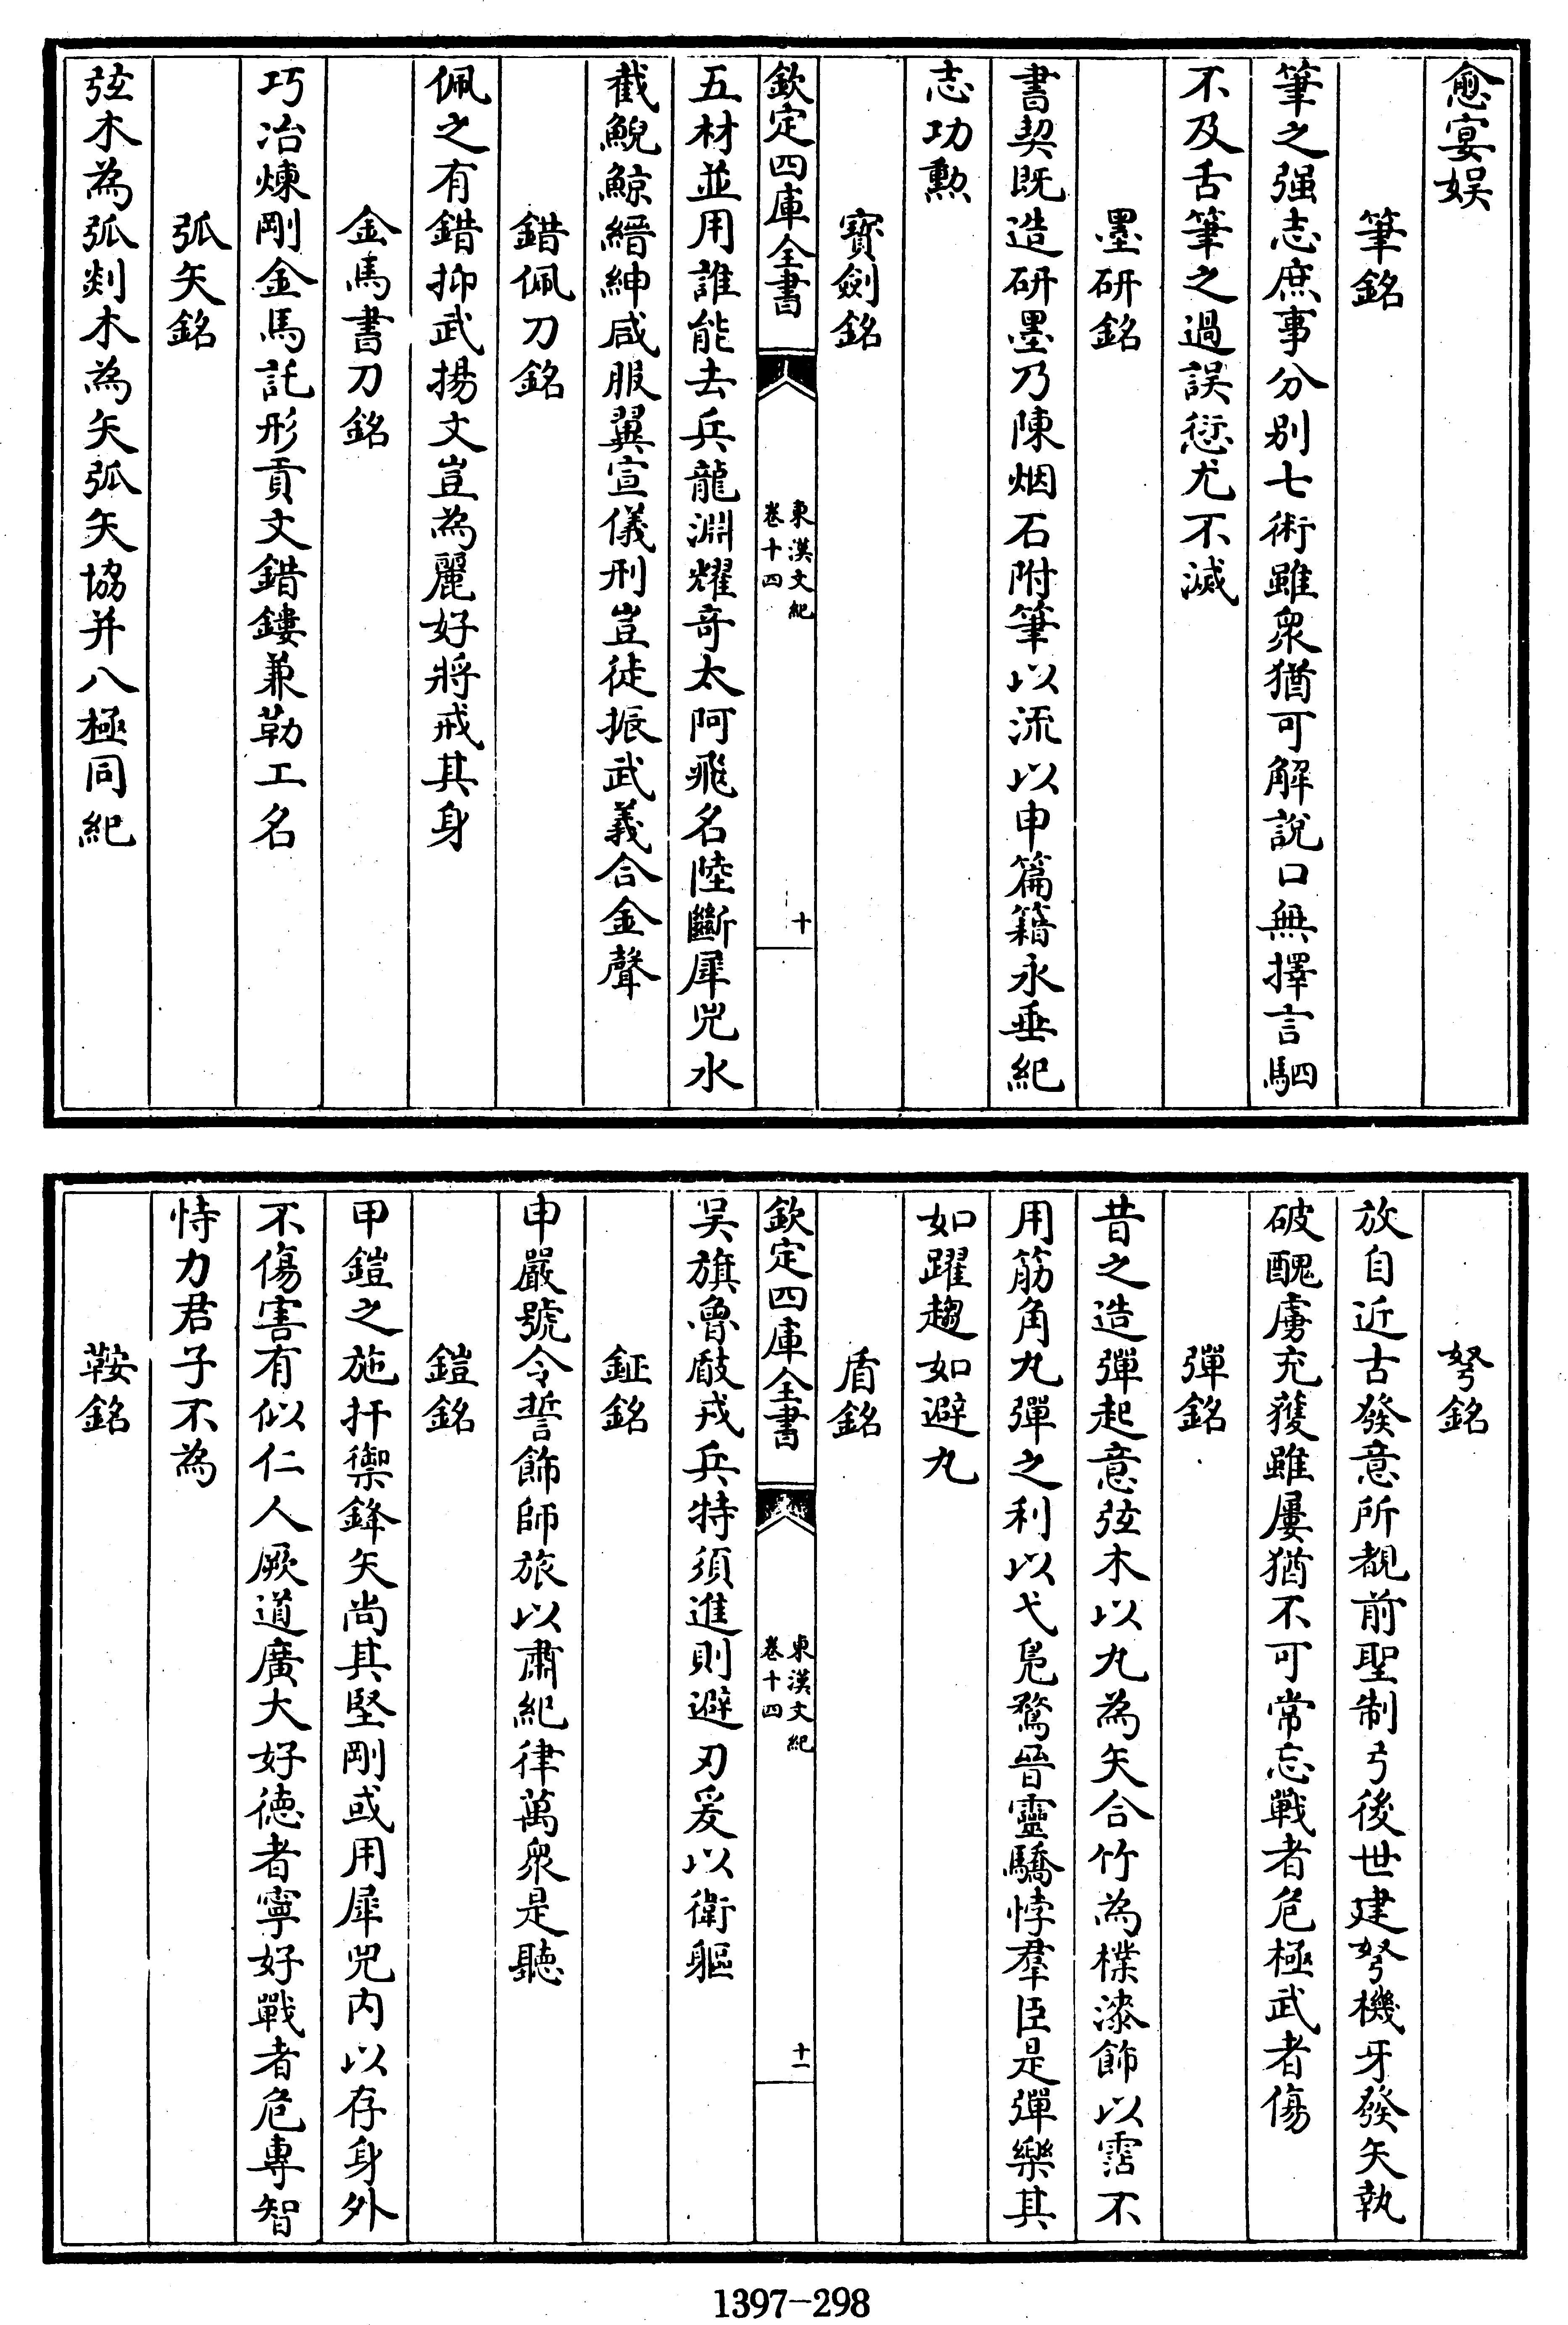 愈宴娯
筆銘
筆之强志庶事分别七術雖衆猶可解說口無擇言駟
不及舌筆之過誤愆尤不滅
墨研銘
書契既造研墨乃陳烟石附筆以流以申篇籍永垂紀
志功勲
寶劍銘
欽定四庫全書
東漢文紀
卷十四
十
五材並用誰能去兵龍淵耀竒太阿飛名陸斷犀兕水
截鯢鯨縉紳咸服翼宣儀刑豈徒振武義合金聲
錯佩刀銘
佩之有錯抑武揚文豈為麗好將戒其身
金馬書刀銘
巧冶煉剛金馬託形貢文錯鏤兼勒工名
弧矢銘
弦木為弧剡木為矢弧矢協并八極同紀
弩銘
放自近古發意所覩前聖制弓後世建弩機牙發矢執
破醜虜充獲雖屢猶不可常忘戰者危極武者傷
彈銘
昔之造彈起意弦木以丸為矢合竹為樸漆飾以霑不
用筋角丸彈之利以弋鳧鶩晉靈驕悖羣臣是彈樂其
如躍趨如避丸
盾銘
欽定四庫全書
東漢文紀
卷十四
十一
吴旗魯瞂戎兵特須進則避刃爰以衛軀
鉦銘
申嚴號令誓飾師旅以肅紀律萬衆是聽
鎧銘
甲鎧之施扞禦鋒矢尚其堅剛或用犀兕内以存身外
不傷害有似仁人厥道廣大好德者寧好戰者危專智
恃力君子不為
鞍銘
1397-298